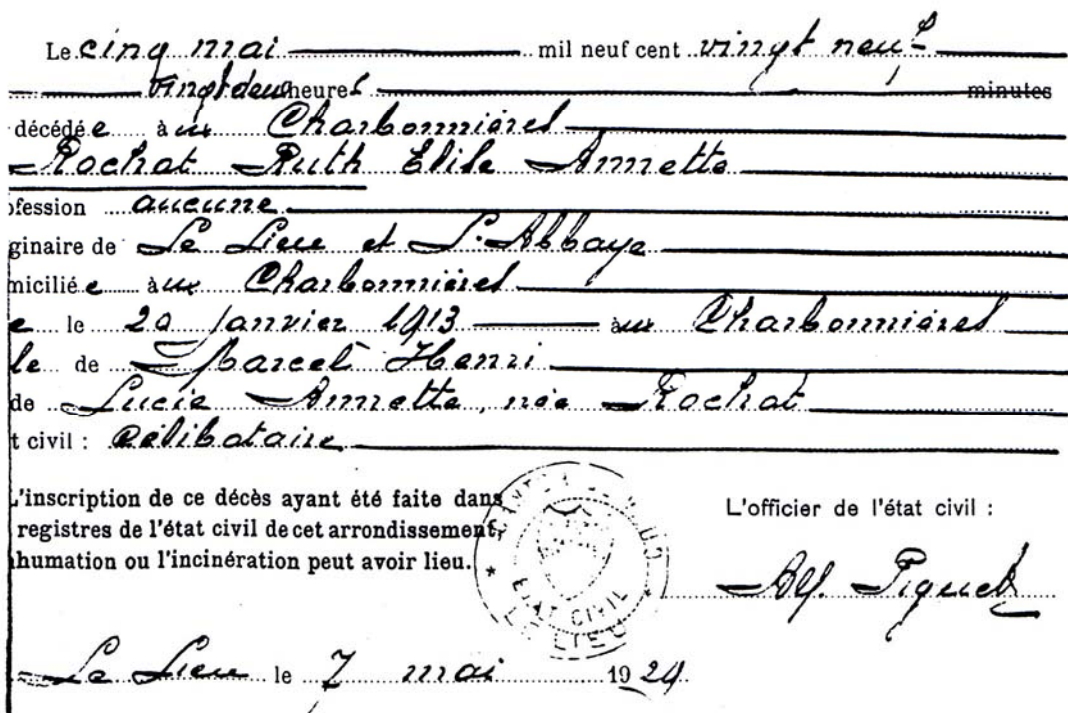 Le cinq mai mil neuf cent vingt neuf
vingt deux heures minutes
décédée à ux Charbonnières
Rochat Ruth Elise Annette
ofession aucune
ginaire de Le Lieu et L'Abbaye
micilié e à ux Charbonnières
e le 20 janvier 1913 à ux Charbonnières
le de Marcel Henri
de Lucie Annette, née Rochat
t civil : Célibataire
L'inscription de ce décès ayant été faite dans
registres de l'état civil de cet arrondissement,
humation ou l'incinération peut avoir lieu.
L'officier de l'état civil :
ETAT CIVIL
LE LIEU
Alf. Piguet
Le Lieu le 7 mai 1929